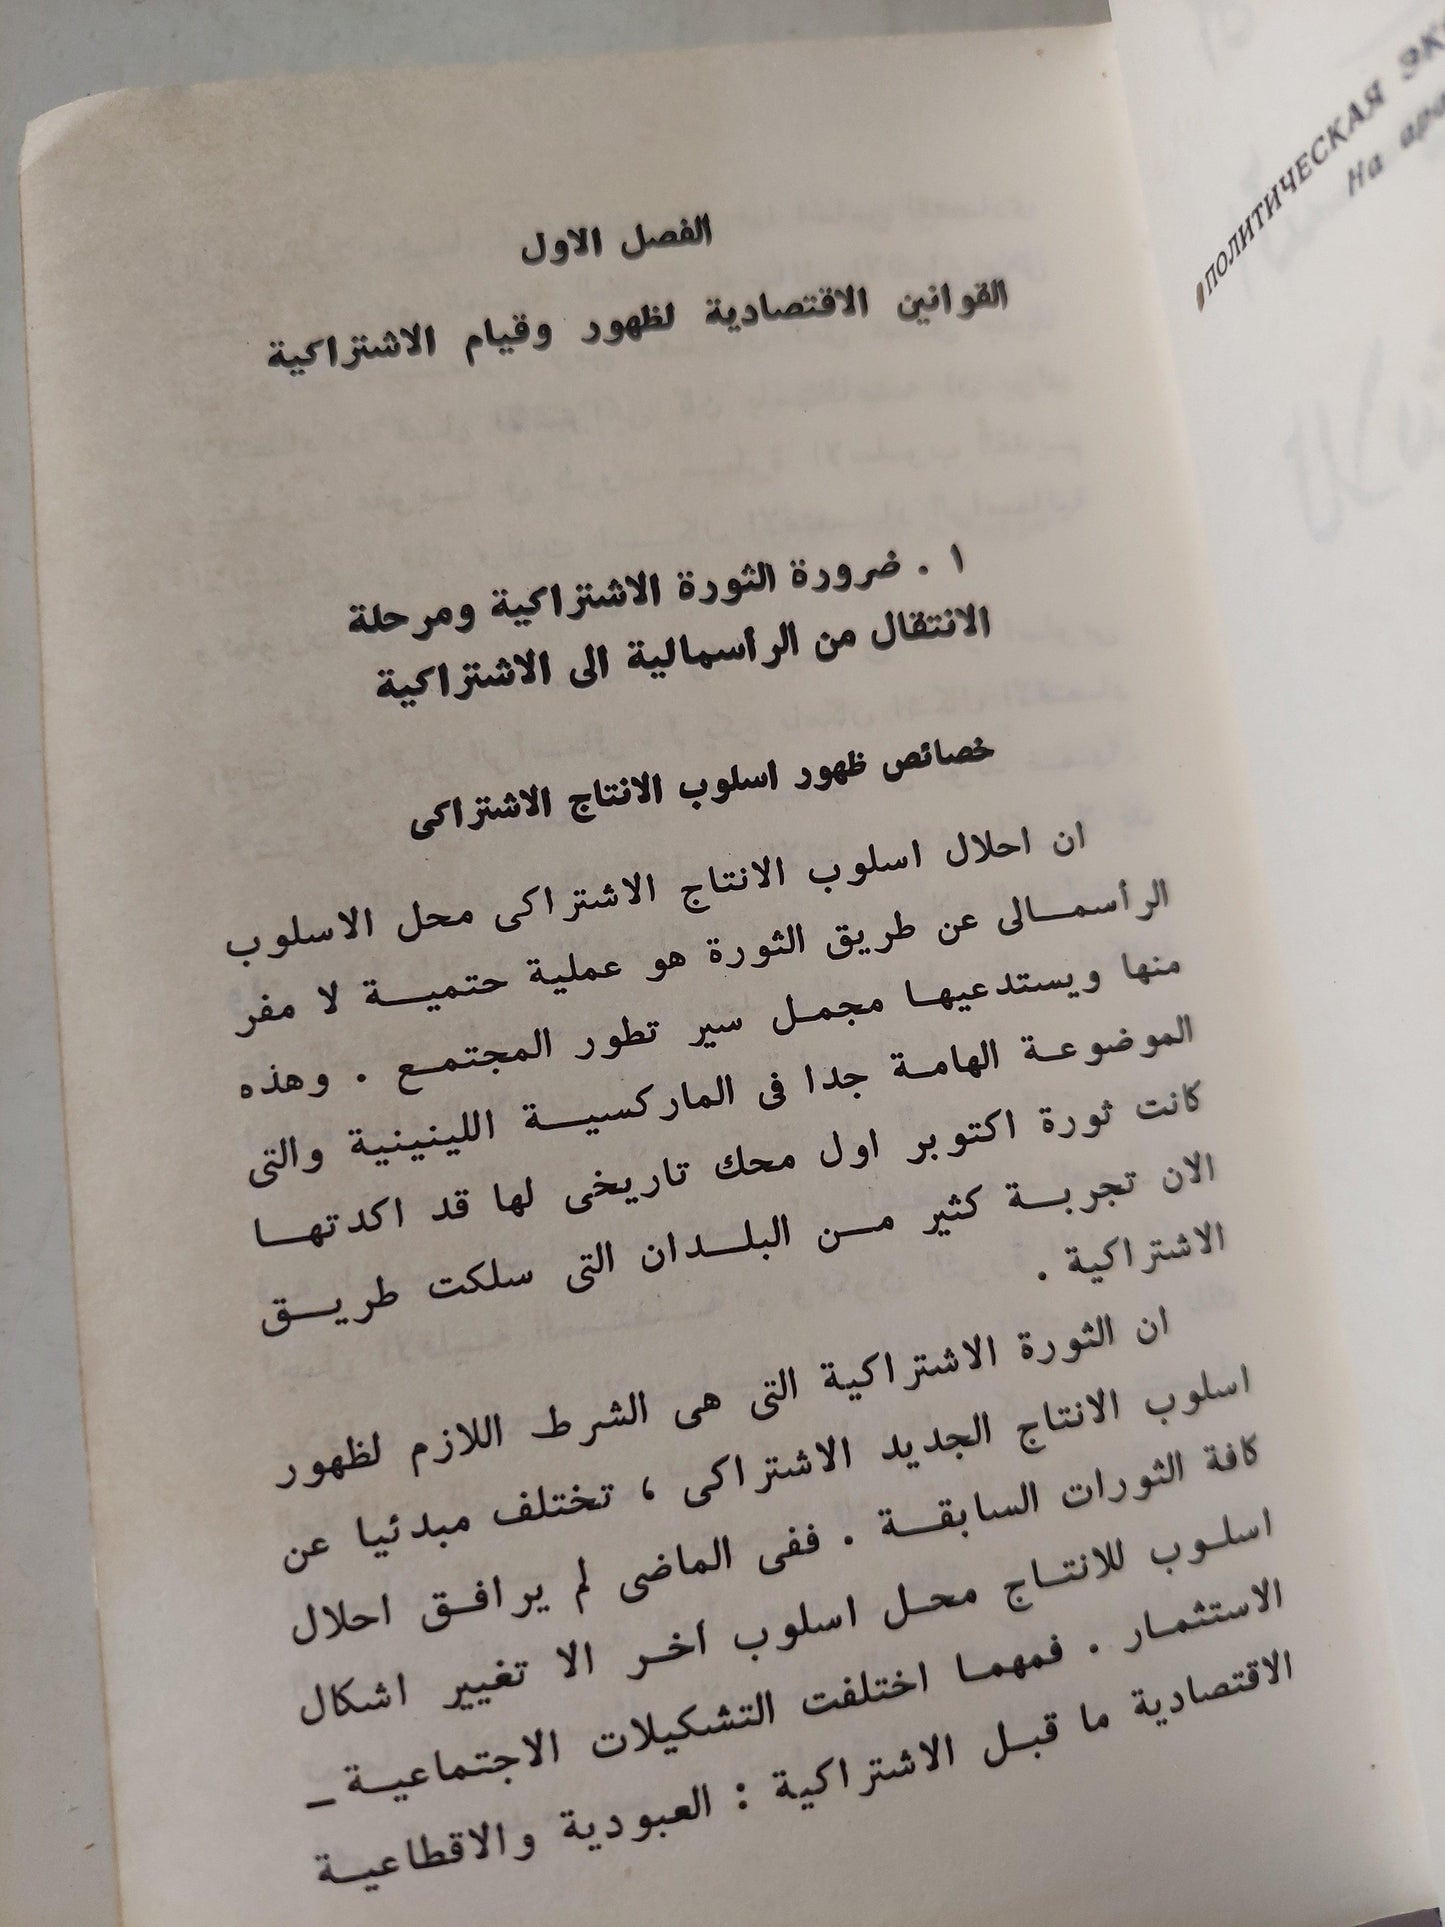 الفصل الاول
القوانين الاقتصادية لظهور وقيام الاشتراكية
١ . ضرورة الثورة الاشتراكية ومرحلة
الانتقال من الرأسمالية الى الاشتراكية
خصائص ظهور اسلوب الانتاج الاشتراكى
ان احلال اسلوب الانتاج الاشتراكى محل الاسلوب
الرأسمـالى عن طريق الثورة هو عملية حتميـة لا مفر
منها ويستدعيها مجمل سير تطور المجتمع . وهذه
الموضوعة الهامة جدا فى الماركسيـة اللينينية والتى
كانت ثورة اكتوبر اول محك تاريخى لها قد اكدتهـا
الان تجربـة كثير مـن البلـدان التى سلكت طريـق
الاشتراكية .
ان الثورة الاشتراكية التى هى الشرط اللازم لظهور
اسلوب الانتاج الجديد الاشتراكى ، تختلف مبدئيا عن
كافة الثورات السابقـة . ففى الماضى لم يرافـق احلال
اسلوب للانتـاج محـل اسلوب آخـر الا تغيير اشكال
الاستثمـار . فمهمـا اختلفت التشكيلات الاجتماعيـة _
الاقتصادية ما قبـل الاشتراكية : العبودية والاقطاعيـة
ПОЛИТИЧЕСКАЯ ЭК
На ара